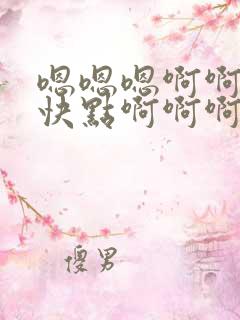 嗯嗯嗯啊啊
快點啊啊啊
傻男